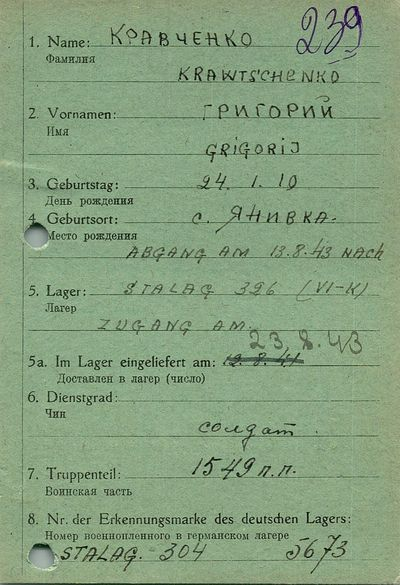 239
1. Name: КРАВЧЕНКО
Фамилия
KRAWTSCHENKO
2. Vornamen: ГРИГОРИЙ
Имя
GRIGORIJ
3. Geburtstag: 24. 1. 10
День рождения
4. Geburtsort: с. ЯНИВКА.
Место рождения
ABGANG AM 13.8.43 NACH
5. Lager: STALAG 326 (VI-K)
Лагер
ZUGANG AM.
23.8.43
5a. Im Lager eingeliefert am: 12.8.41
Доставлен в лагер (число)
6. Dienstgrad:
Чин
солдат.
7. Truppenteil: 1549 п.п.
Воинская часть
8. Nr. der Erkennungsmarke des deutschen Lagers:
Номер военнопленного в германском лагере
STALAG. 304 5673